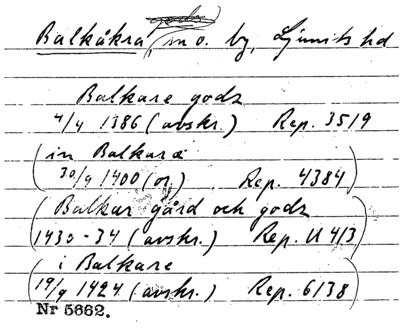 Balkåkra, sn o. by, Ljunits hd
Balkare godz
4/4 1386 (avskr.) Rep. 3519
(in Balkaræ
30/9 1400 (or) Rep. 4384)
(Balkar gård och godz
1430-34 (avskr.) Rep. U 413)
(i Balkare
19/9 1424 (avskr.) Rep. 6138)
Nr 5662.